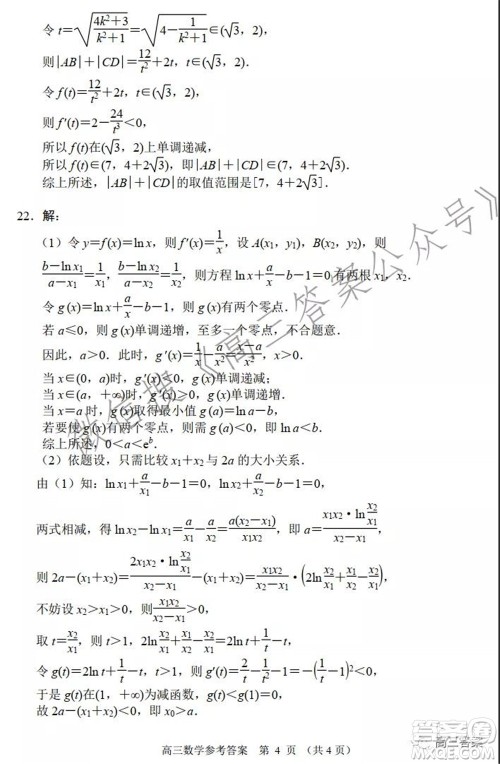 令 t=√((4k²+3)/(k²+1))=√(4−1/(k²+1))∈(√3，2)，
则|AB|+|CD|=12/t²+2t，t∈(√3，2)．
令 f(t)=12/t²+2t，t∈(√3，2)，
则 f′(t)=2−24/t³<0，
所以 f(t)在(√3，2)上单调递减，
所以 f(t)∈(7，4+2√3)，即|AB|+|CD|∈(7，4+2√3)．
综上所述，|AB|+|CD|的取值范围是[7，4+2√3]．
22．解：
（1）令 y=f(x)=ln x，则 f′(x)=1/x，设 A(x₁，y₁)，B(x₂，y₂)，则
(b−ln x₁)/(a−x₁)=1/x₁，(b−ln x₂)/(a−x₂)=1/x₂，则方程 ln x+a/x−b−1=0 有两根 x₁，x₂．
令 g(x)=ln x+a/x−b−1，则 g(x)有两个零点．
若 a≤0，则 g(x)单调递增，至多一个零点，不合题意．
因此，a>0．此时，g′(x)=1/x−a/x²=(x−a)/x²，x>0．
当 x∈(0，a)时，g′(x)<0，g(x)单调递减；
当 x∈(a，+∞)时，g′(x)>0，g(x)单调递增．
当 x=a 时，g(x)取得最小值 g(a)=ln a−b．
若要使 g(x)有两个零点，则需 g(a)<0，即 ln a<b．
综上所述，0<a<eᵇ．
（2）依题设，只需比较 x₁+x₂ 与 2a 的大小关系．
由（1）知：ln x₁+a/x₁−b−1=0，ln x₂+a/x₂−b−1=0，
两式相减，得 ln x₂−ln x₁=a/x₁−a/x₂=a(x₂−x₁)/(x₁x₂)，即 a=(x₁x₂·ln(x₂/x₁))/(x₂−x₁)，
则 2a−(x₁+x₂)=(2x₁x₂·ln(x₂/x₁))/(x₂−x₁)−(x₁+x₂)=x₁x₂/(x₂−x₁)·(2ln(x₂/x₁)+x₁/x₂−x₂/x₁)，
不妨设 x₂>x₁>0，则 x₁x₂/(x₂−x₁)>0，
取 t=x₂/x₁，则 t>1，2ln(x₂/x₁)+x₁/x₂−x₂/x₁=2ln t+1/t−t，
令 g(t)=2ln t+1/t−t，t>1，则 g′(t)=2/t−1/t²−1=−(1/t−1)²<0，
于是 g(t)在(1，+∞)为减函数，g(t)<g(1)=0，
故 2a−(x₁+x₂)<0，即 x₀>a．
高三数学参考答案 第 4 页 （共 4 页）
微信搜《高三答案公众号》
高三答案